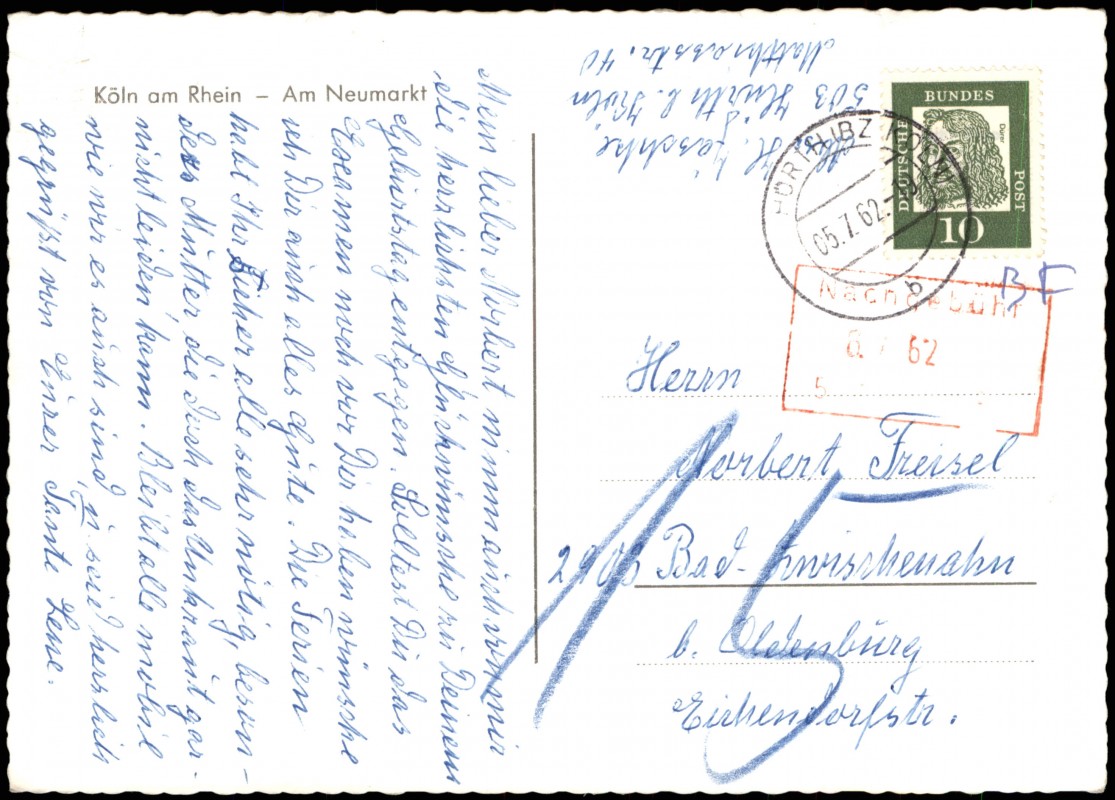 Köln am Rhein – Am Neumarkt
Mein lieber Norbert nimm auch von mir
die herzlichsten Glückwünsche zu Deinem
Geburtstag entgegen. Solltest Du das
Examen noch vor Dir haben wünsche
ich Dir auch alles Gute. Die Ferien
habt Ihr sicher alle sehr nötig, beson-
ders Mutter, die doch das Unkraut gar
nicht leiden kann. Bleibt alle mobil
wie wir es auch sind, u. seid herzlich
gegrüßt von Eurer Tante Lene.
H. Jaschke
503 Hürth b. Köln
Matthiasstr. 40
DEUTSCHE
BUNDES
POST
Dürer
10
HÜRTH (BZ KÖLN)
05.7.62.
b
BF
Nachgebühr
6.7 62
5
Herrn
Norbert Freisel
2903 Bad-Zwischenahn
b. Oldenburg
Eichendorfstr.
15